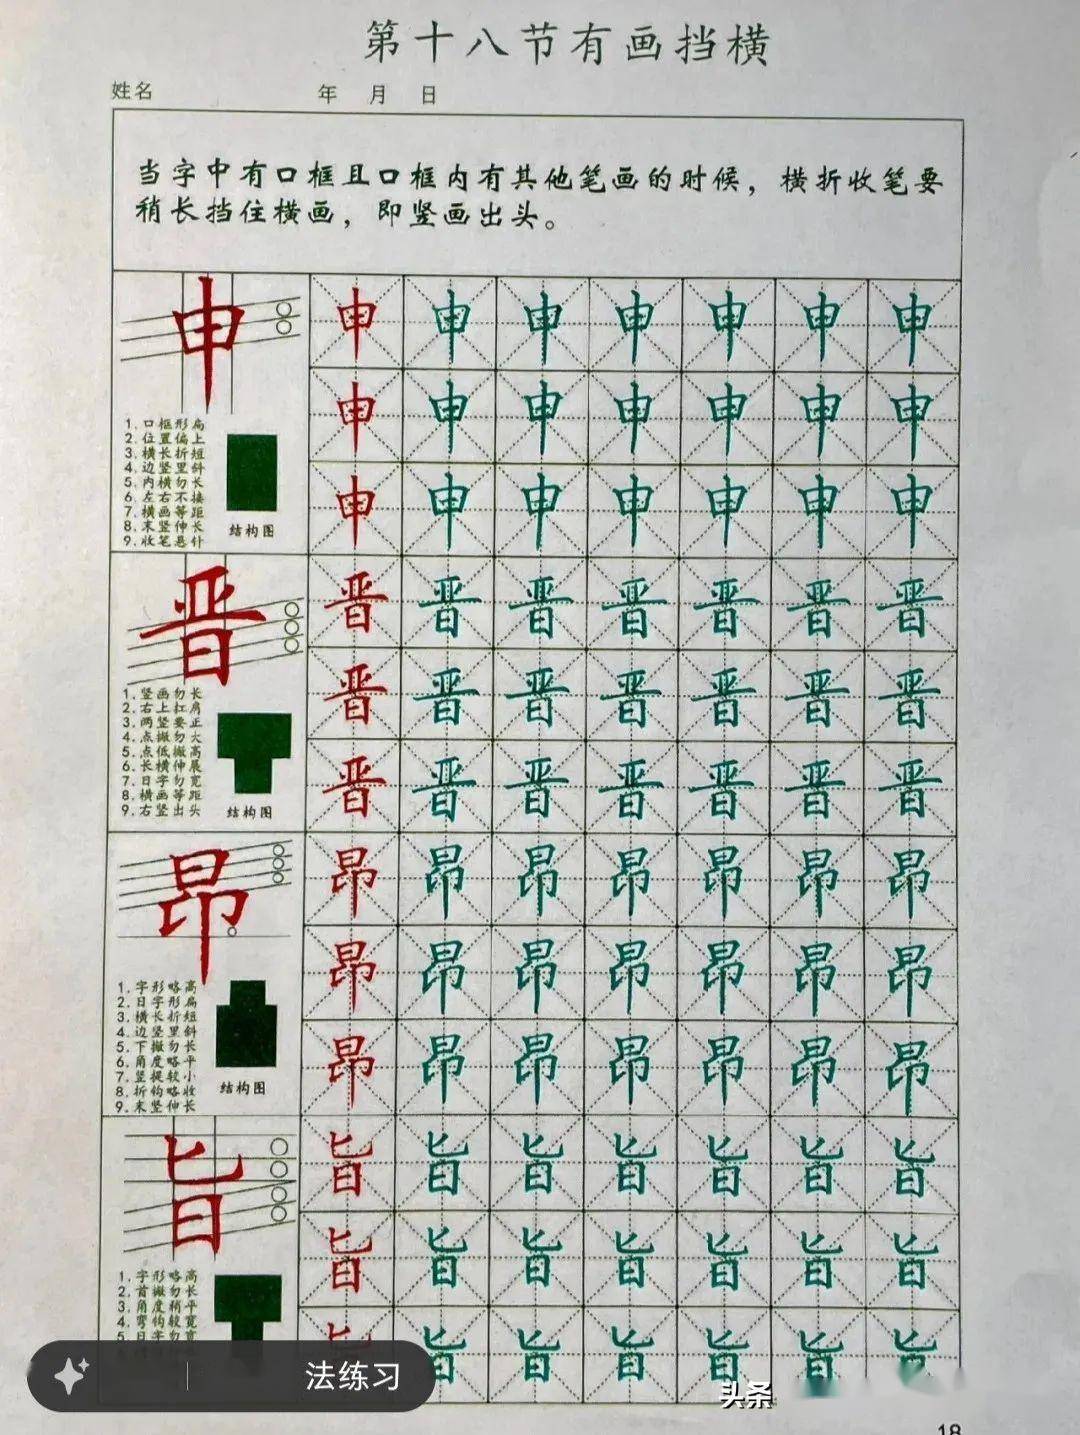 第十八节有画挡横
姓名 年 月 日
当字中有口框且口框内有其他笔画的时候，横折收笔要
稍长挡住横画，即竖画出头。
申 申 申 申 申 申 申 申
申 申 申 申 申 申 申
申 申 申 申 申 申 申
1.口框形扁
2.位置偏上
3.横长折短
4.边竖里斜
5.内横勿长
6.左右不接
7.横画等距
8.末竖伸长
9.收笔悬针
结构图
晋 晋 晋 晋 晋 晋 晋 晋
晋 晋 晋 晋 晋 晋 晋
晋 晋 晋 晋 晋 晋 晋
1.竖画勿长
2.右上扛肩
3.两竖要正
4.点撇勿大
5.点低撇高
6.长横伸展
7.日字勿宽
8.横画等距
9.右竖出头
结构图
昂 昂 昂 昂 昂 昂 昂 昂
昂 昂 昂 昂 昂 昂 昂
昂 昂 昂 昂 昂 昂 昂
1.字形略高
2.日字形扁
3.横长折短
4.边竖里斜
5.下撇勿长
6.角度略平
7.竖提较小
8.折钩略收
9.末竖伸长
结构图
旨 旨 旨 旨 旨 旨 旨 旨
旨 旨 旨 旨 旨 旨 旨
旨 旨 旨 旨 旨 旨
1.字形略高
2.首撇勿长
3.角度稍平
4.弯钩较宽
5.日字勿宽
法练习
头条
18